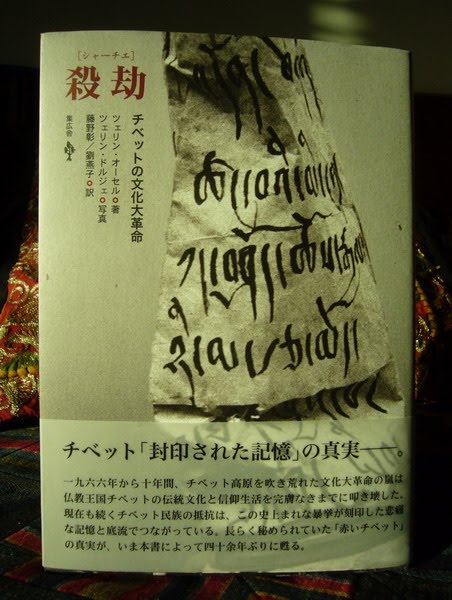 [シャーチェ]
殺劫
チベットの文化大革命
ツェリン・オーセル 著
ツェリン・ドルジェ 写真
藤野彰/劉燕子 訳
集広舎
チベット「封印された記憶」の真実――。
一九六六年から十年間、チベット高原を吹き荒れた文化大革命の嵐は
仏教王国チベットの伝統文化と信仰生活を完膚なきまでに叩き壊した。
現在も続くチベット民族の抵抗は、この史上まれな暴挙が刻印した悲痛
な記憶と底流でつながっている。長らく秘められていた「赤いチベット」
の真実が、いま本書によって四十余年ぶりに甦る。